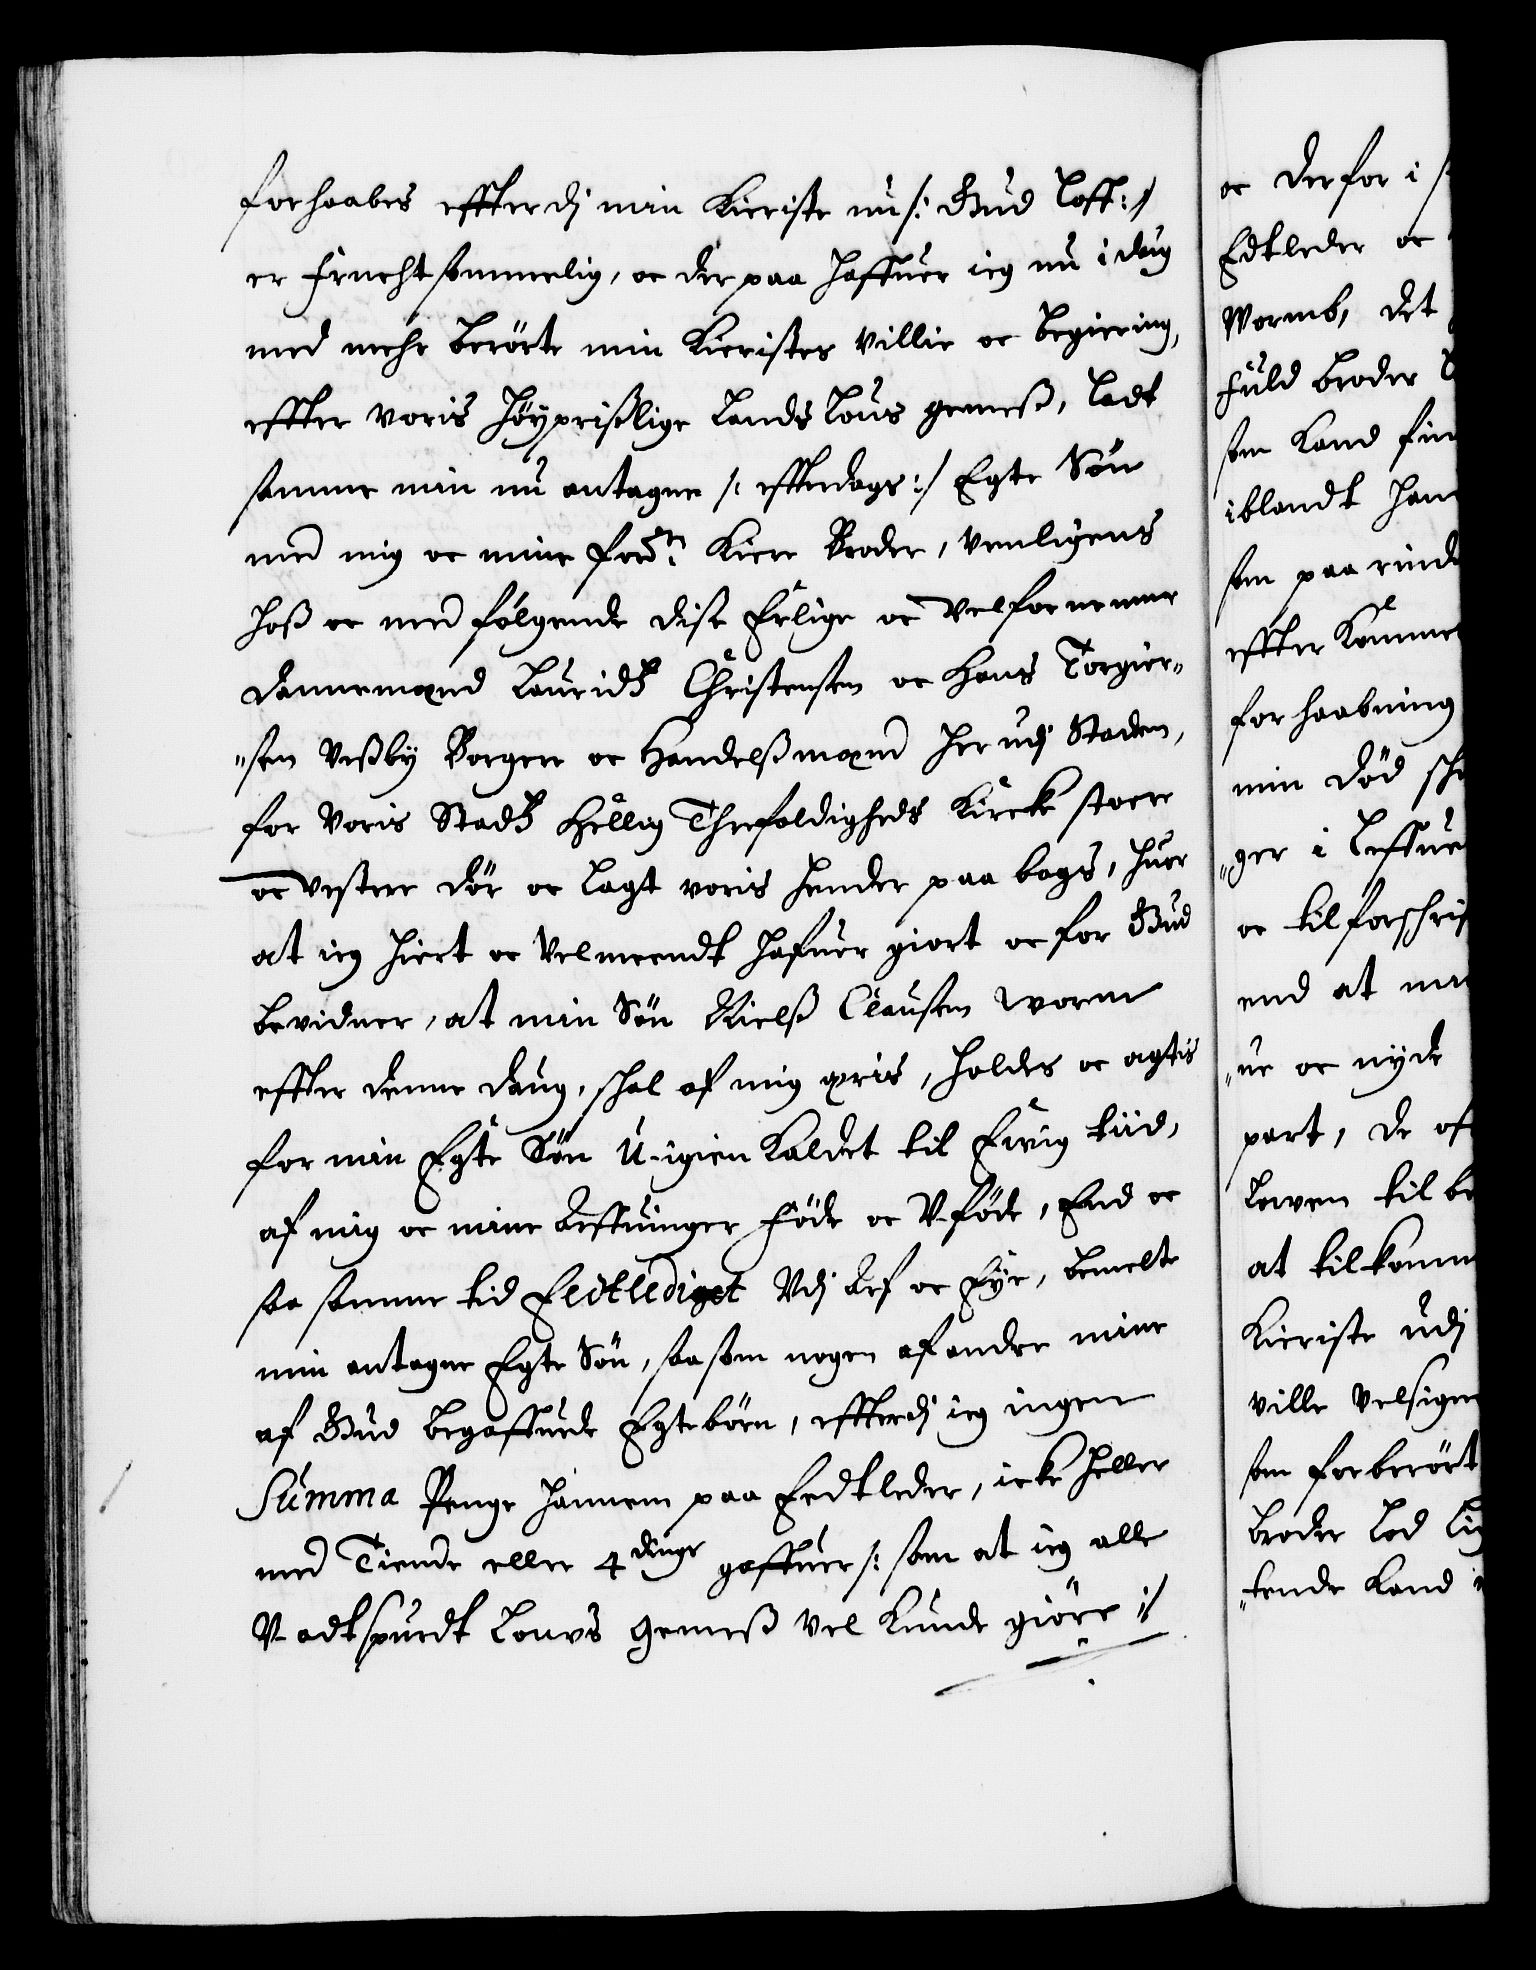 forhaabes effterdj min Kieriste nu /: Gud loff :/
er fruchtsommelig, oc der paa haffuer ieg nu i dag
med mehr berörte min Kieristes Villie oc begiering,
effter voris höyprißlige Lands Lous gemeß, ladt
samme min nu antagne /: effterdags :/ Egte Sön
med mig oc mine ford.ne Kiere Broder, venligens
hoß oc med fölgende dise Erlige oc Velfornemme
Dannemænd Lauridz Christensen oc Hans Torgier„
„sen Vißby Borgere oc Handelßmænd her udj Staden,
for Voris Stadz Hellig Threfoldigheds Kircke stoere
oc Vestere Dör oc lagt voris hender paa bogs, huer
at ieg hiert oc Velmeendt hafuer giort oc for Gud
bevidner, at min Sön Nielß Clausen Worm
effter denne daug, schal af mig priis, holdes oc agtis
for min Egte Sön U-igien kaldet til Ewig tiid,
af mig oc mine Arffuinger födte oc V-födte, End oc
saa samme tid Eedtlediget Vdj Arf oc Eÿe, bemelte
min antagne Egte Sön, saasom nogen af andre mine
af Gud begaffuede Egtebörn, effterdj ieg ingen
Summa Penge hannem paa Eedtleder, icke heller
med Tiende eller 4dinge gaffuer /: som at ieg alle
V-adtspurdt Louvs gemeß Vel kunde giöre :/
oc derfor i
Edtleder oc
Wormb, det
fuld broder
som Kand
iblandt
som paa
effter
forhaabning
min död
„ger i
oc til
end at
„ue oc nyde
part, de
Lowen til
at tilkomm
Kieriste udj
ville Velsigne
som forberört
broder Lod
„tende Kand